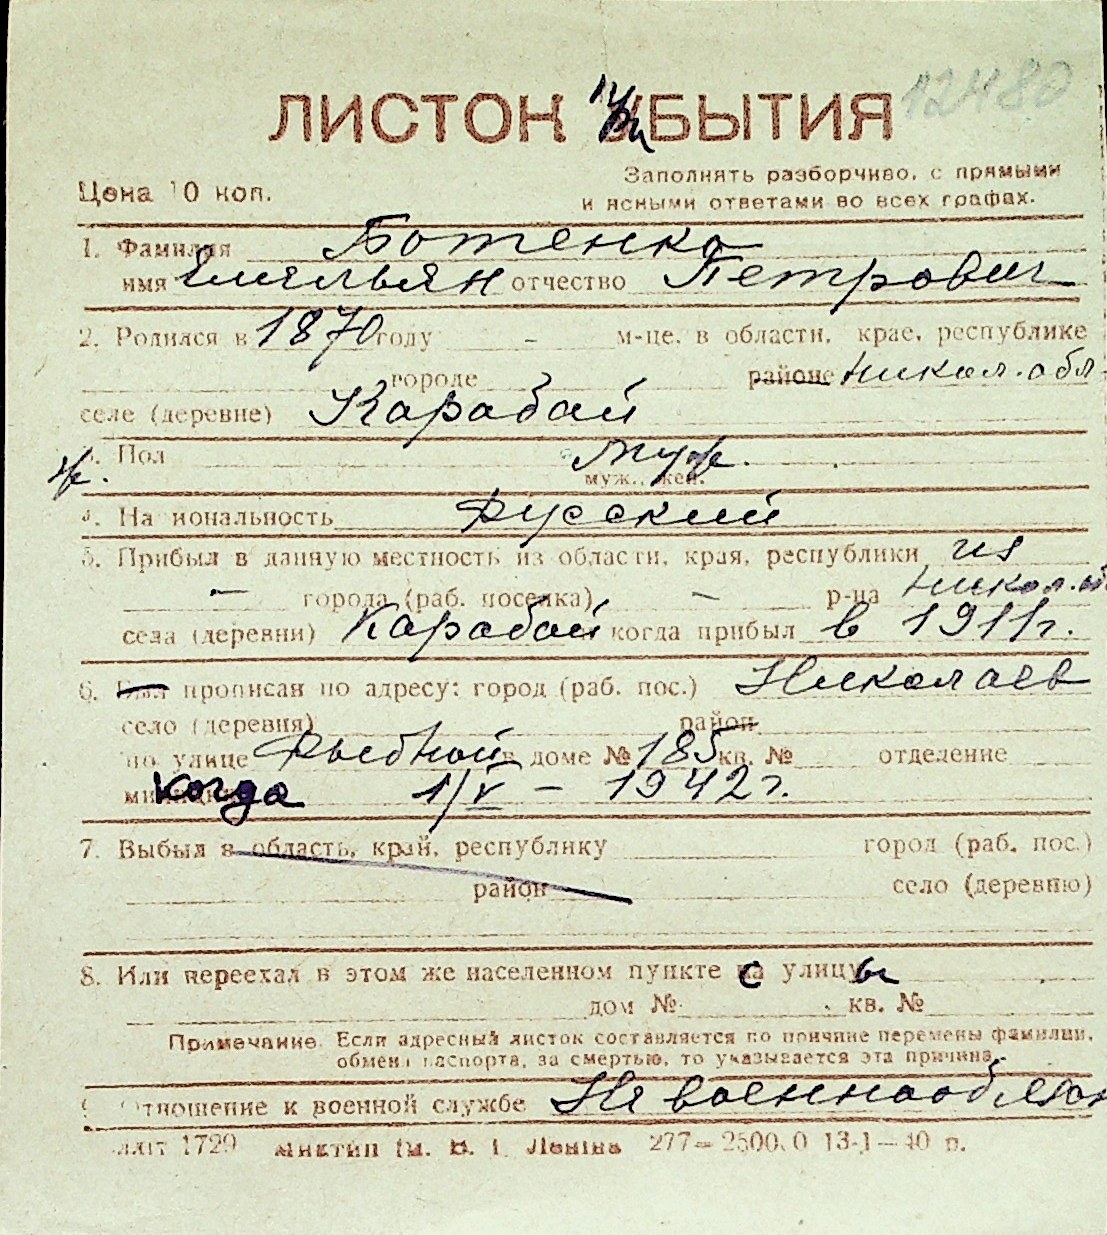 12480
ЛИСТОК ПРИБЫТИЯ
Цена 10 коп.
Заполнять разборчиво, с прямыми
и ясными ответами во всех графах.
1. Фамилия Ботенко
имя Емильян отчество Петрович
2. Родился в 1870 году - м-це, в области, крае, республике
городе районе Никол. обл.
селе (деревне) Карабай
Пол муж.
муж., жен.
ж.
4. Национальность Русский
5. Прибыл в данную местность из области, края, республики из
— города (раб. поселка) — р-на Никол. о
села (деревни) Карабай когда прибыл в 1911 г.
6. Был прописан по адресу: город (раб. пос.) Николаев
село (деревня) район
по улице Рыбной в доме № 185 кв. № отделение
когда 1/V – 1942 г.
7. Выбыл в область, край, республику город (раб. пос.)
район село (деревню)
8. Или переехал в этом же населенном пункте с улицы
дом № кв. №
Примечание. Если адресный листок составляется по причине перемены фамилии,
обмена паспорта, за смертью, то указывается эта причина.
Отношение к военной службе Не военнообязан
1729 Ленiна 277—2500.0 13-1—40 р.